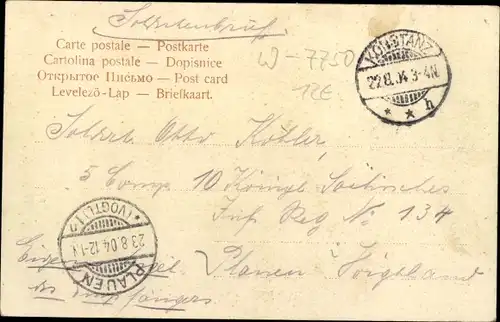 Soldatenbrief
Carte postale — Postkarte
Cartolina postale — Dopisnice
Открытое Письмо — Post card
Levelező-Lap — Briefkaart.
W-7750
12E
KONSTANZ
22.8.04 3-4N.
* * h
Soldat Otto Köhler
5 Comp 10 Königl Sächsisches
Inf Reg No 134
Plauen Voigtland
Eigen
des Empfängers
PLAUEN
23.8.04.12-1N.
*(VOGTL.)1